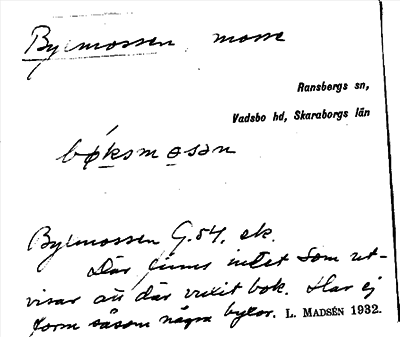 Bykmossen, mosse
Ransbergs sn,
Vadsbo hd, Skaraborgs län
bǿksmosən
Bykmossen G.54. ek.
Där finns intet som ut-
visar att där vuxit bok. Har ej
form såsom några bykor. L. MADSÉN 1932.